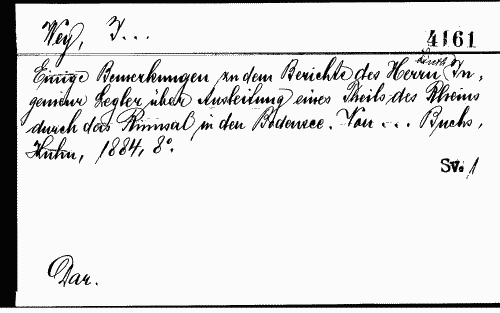 Wey, J...
4161
Einige Bemerkungen zu dem Berichte des Herrn Linth In-
genieur Legler über Ausleitung eines Theils des Rheins
durch das Rinnsal in den Bodensee. Von ... Buchs,
Kuhn, 1884, 8°.
Sv. 1
Dar.